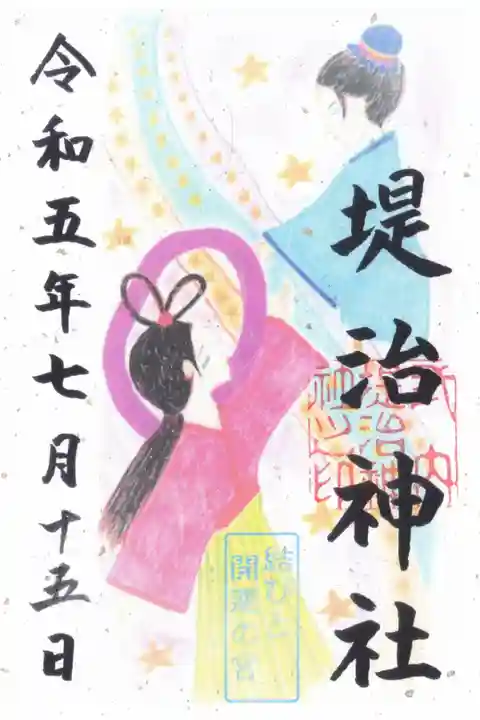 堤治神社
式内
堤治神
社之印
結び之
開運の宮
令和五年七月十五日